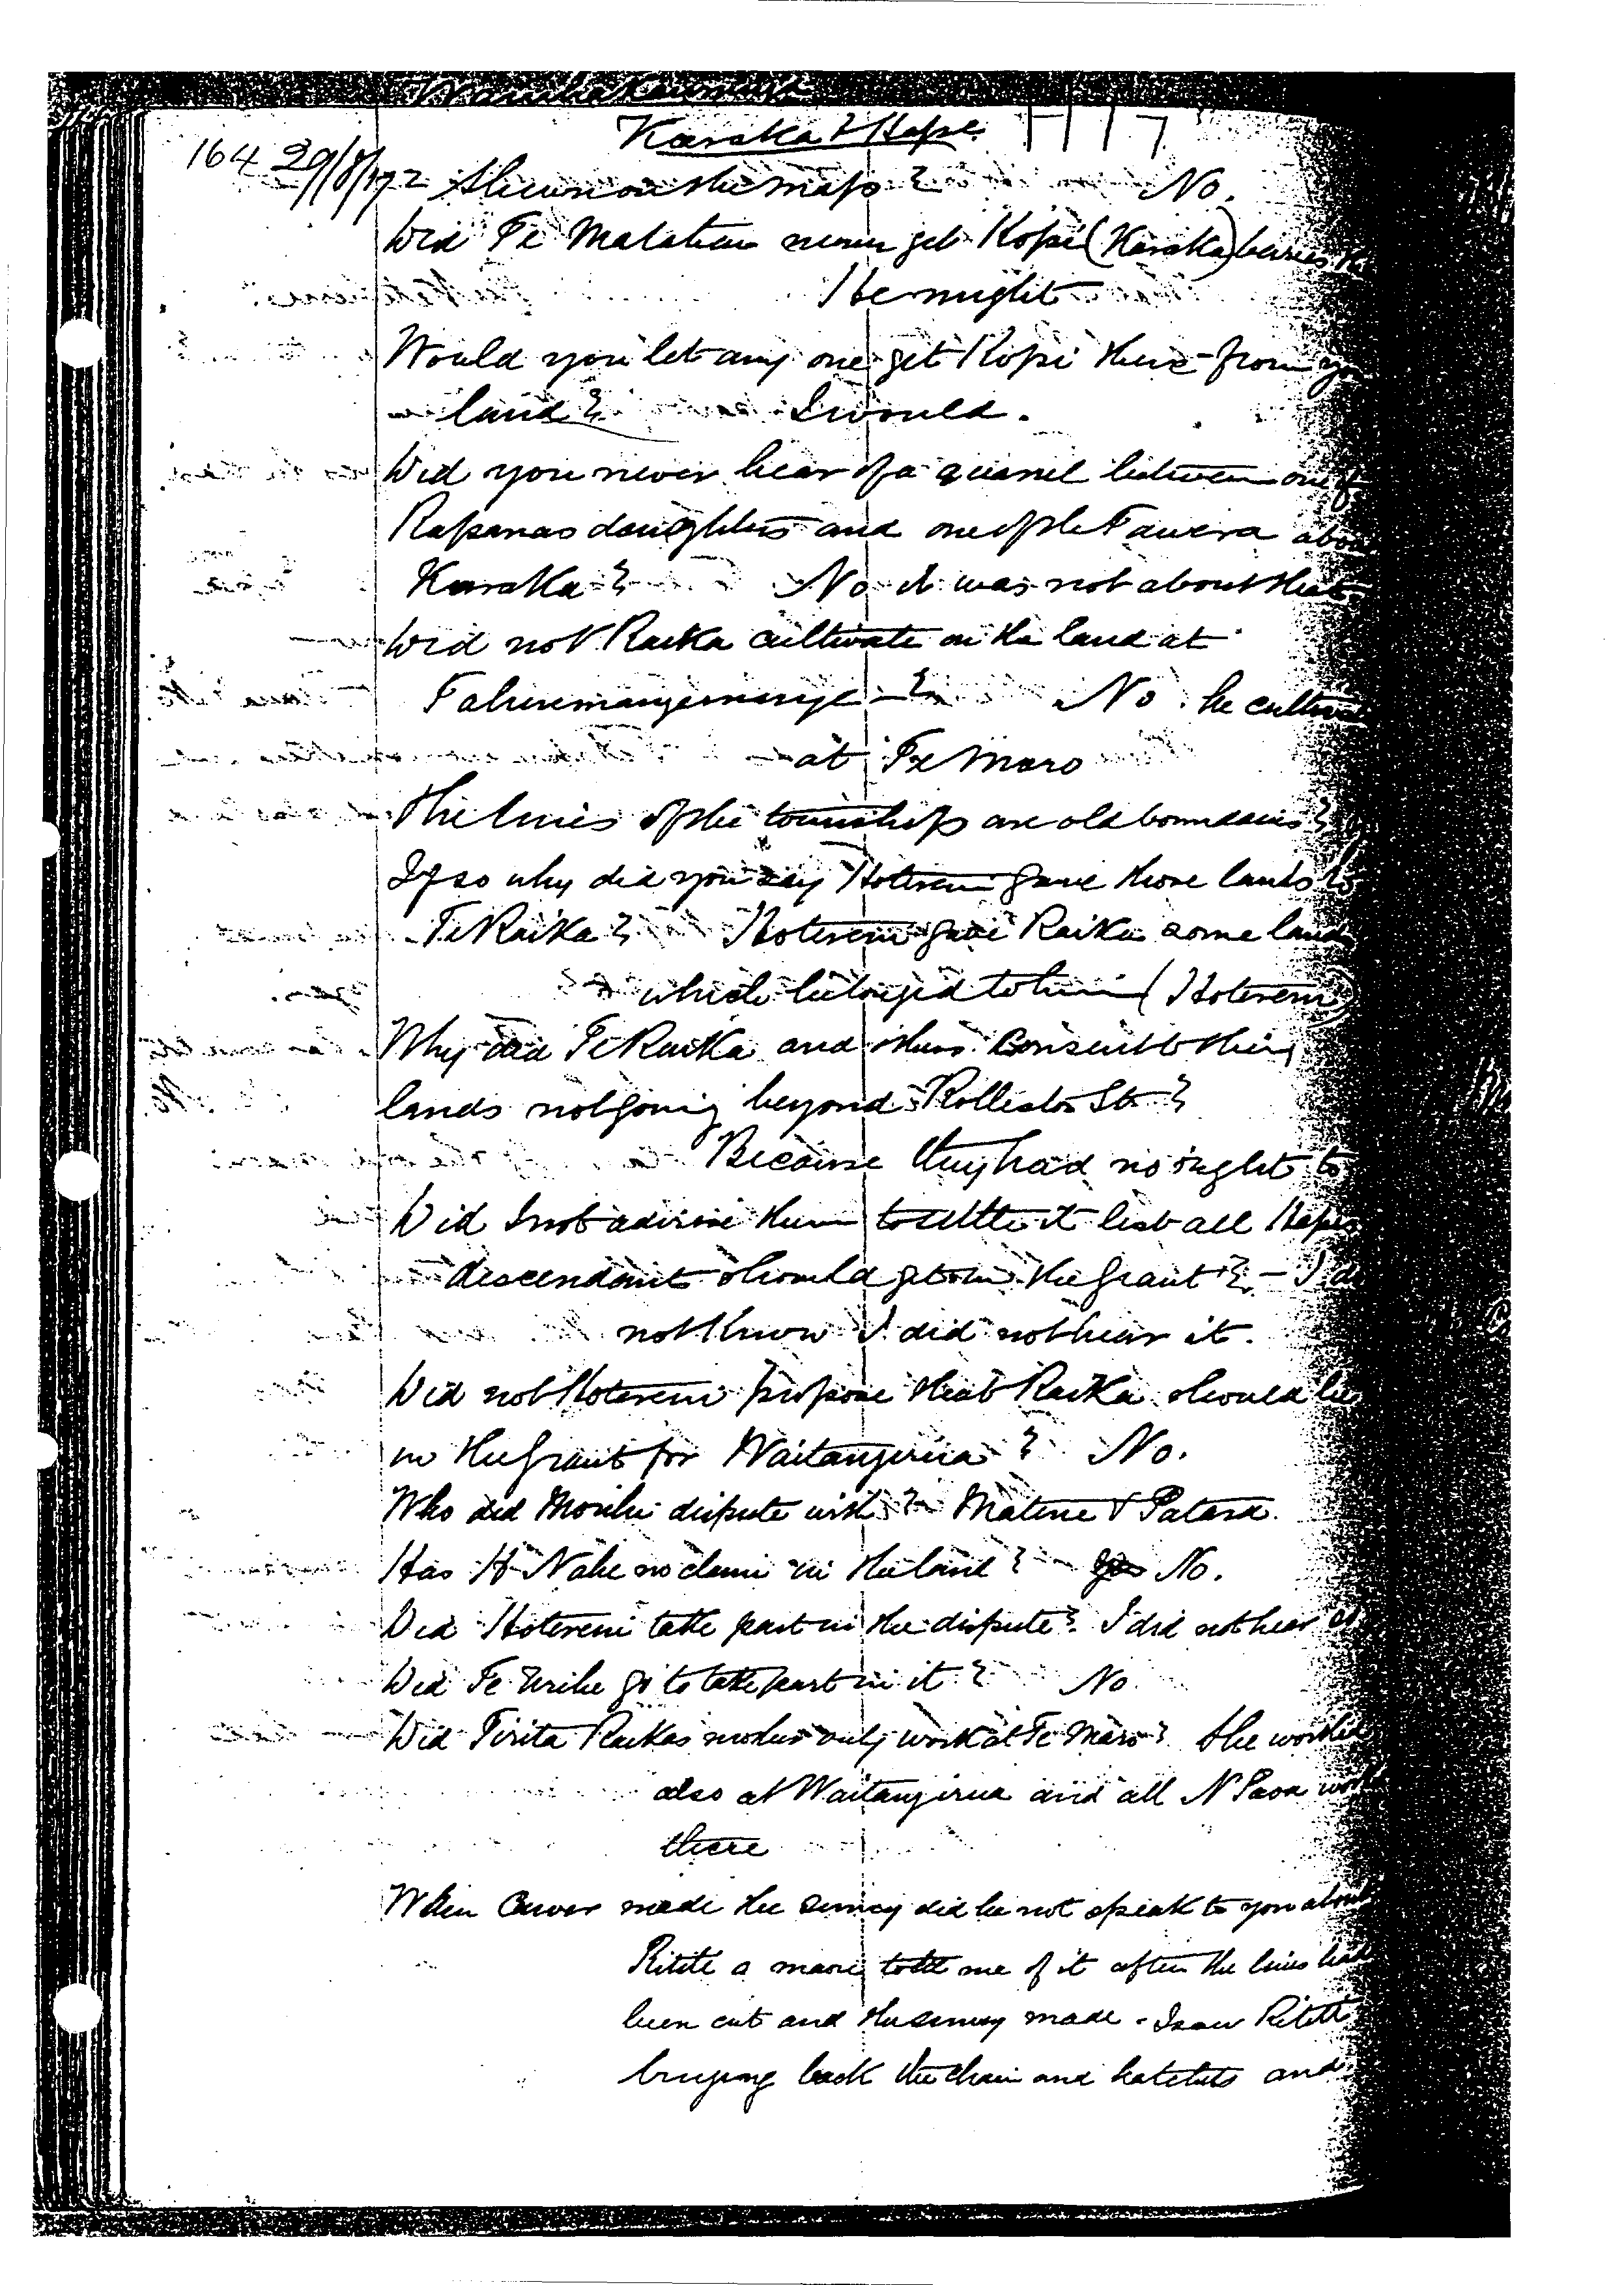 Karaka & Hape H 17
164 29/8/72 Shewn on the map? No.
Did Te Matatau never get Kopi (Karaka) berries
He might
Would you let any one get Kopi there from
land? I would.
Did you never hear of a quarrel between one of
Rapanas daughters and one of the Tawera
Karaka? No it was not about that
Did not Raika cultivate on the land at
No he
at Te Maro
The lines of the township are old boundaries?
If so why did you say Hotereni gave those lands to
Te Raika? Hotereni gave Raika some land
which belonged to him (Hotereni)
Why did Te Raika and others consent to their
lands not going beyond Rolleston St?
Because they had no right to
Did I not advise them to settle it lest all
descendants should get on the grant? – I
not know I did not hear it.
Did not Hotereni propose that Raika should be
in the grant for Waitangirua? No.
Who did dispute with? Matene & Patara.
Has H Nahe no claim in the land? No.
Did Hotereni take part in the dispute? I did not hear
Did Te Wike go to take part in it? No
Did Tirita Raikas mother only work at Te Maro? She worked
also at Waitangirua and all N Paoa
there
When made the survey did he not speak to you about
Ritete a maori told me of it after the lines had
been cut and the survey made. I saw Ritete
bringing back the chain and hatchets and